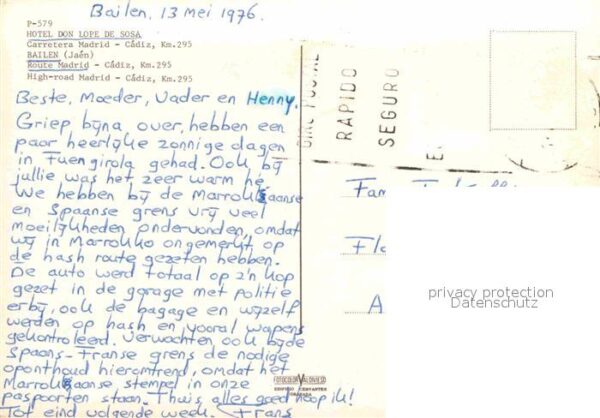 Bailen, 13 mei 1976.
P-579
HOTEL DON LOPE DE SOSA
Carretera Madrid - Cádiz, Km.295
BAILEN (Jaén)
Route Madrid - Cádiz, Km.295
High-road Madrid - Cádiz, Km.295
Beste, Moeder, Vader en Henny.
Griep bijna over, hebben een
paar heerlijke zonnige dagen
in Fuengirola gehad. Ook bij
jullie was het zeer warm hé.
We hebben bij de Marrokaanse
en Spaanse grens vrij veel
moeilijkheden ondervonden, omdat
wij in Marrokko ongemerkt op
de hash route gezeten hebben.
De auto werd totaal op z'n kop
gezet in de garage met politie
erbij, ook de bagage en wijzelf
werden op hash en vooral wapens
gekontroleerd. Verwachten ook bij de
Spaans-Franse grens de nodige
oponthoud hieromtrend, omdat het
Marrokaanse, stempel in onze
paspoorten staan. Thuis alles goed hoop ik!
Tot eind volgende week. Frans
POSTAL
RAPIDO
SEGURO
Fam
Fl
A
privacy protection
Datenschutz
FOTOCOLOR VALDIVIESO
EDIFICIO CERVANTES
GRANADA